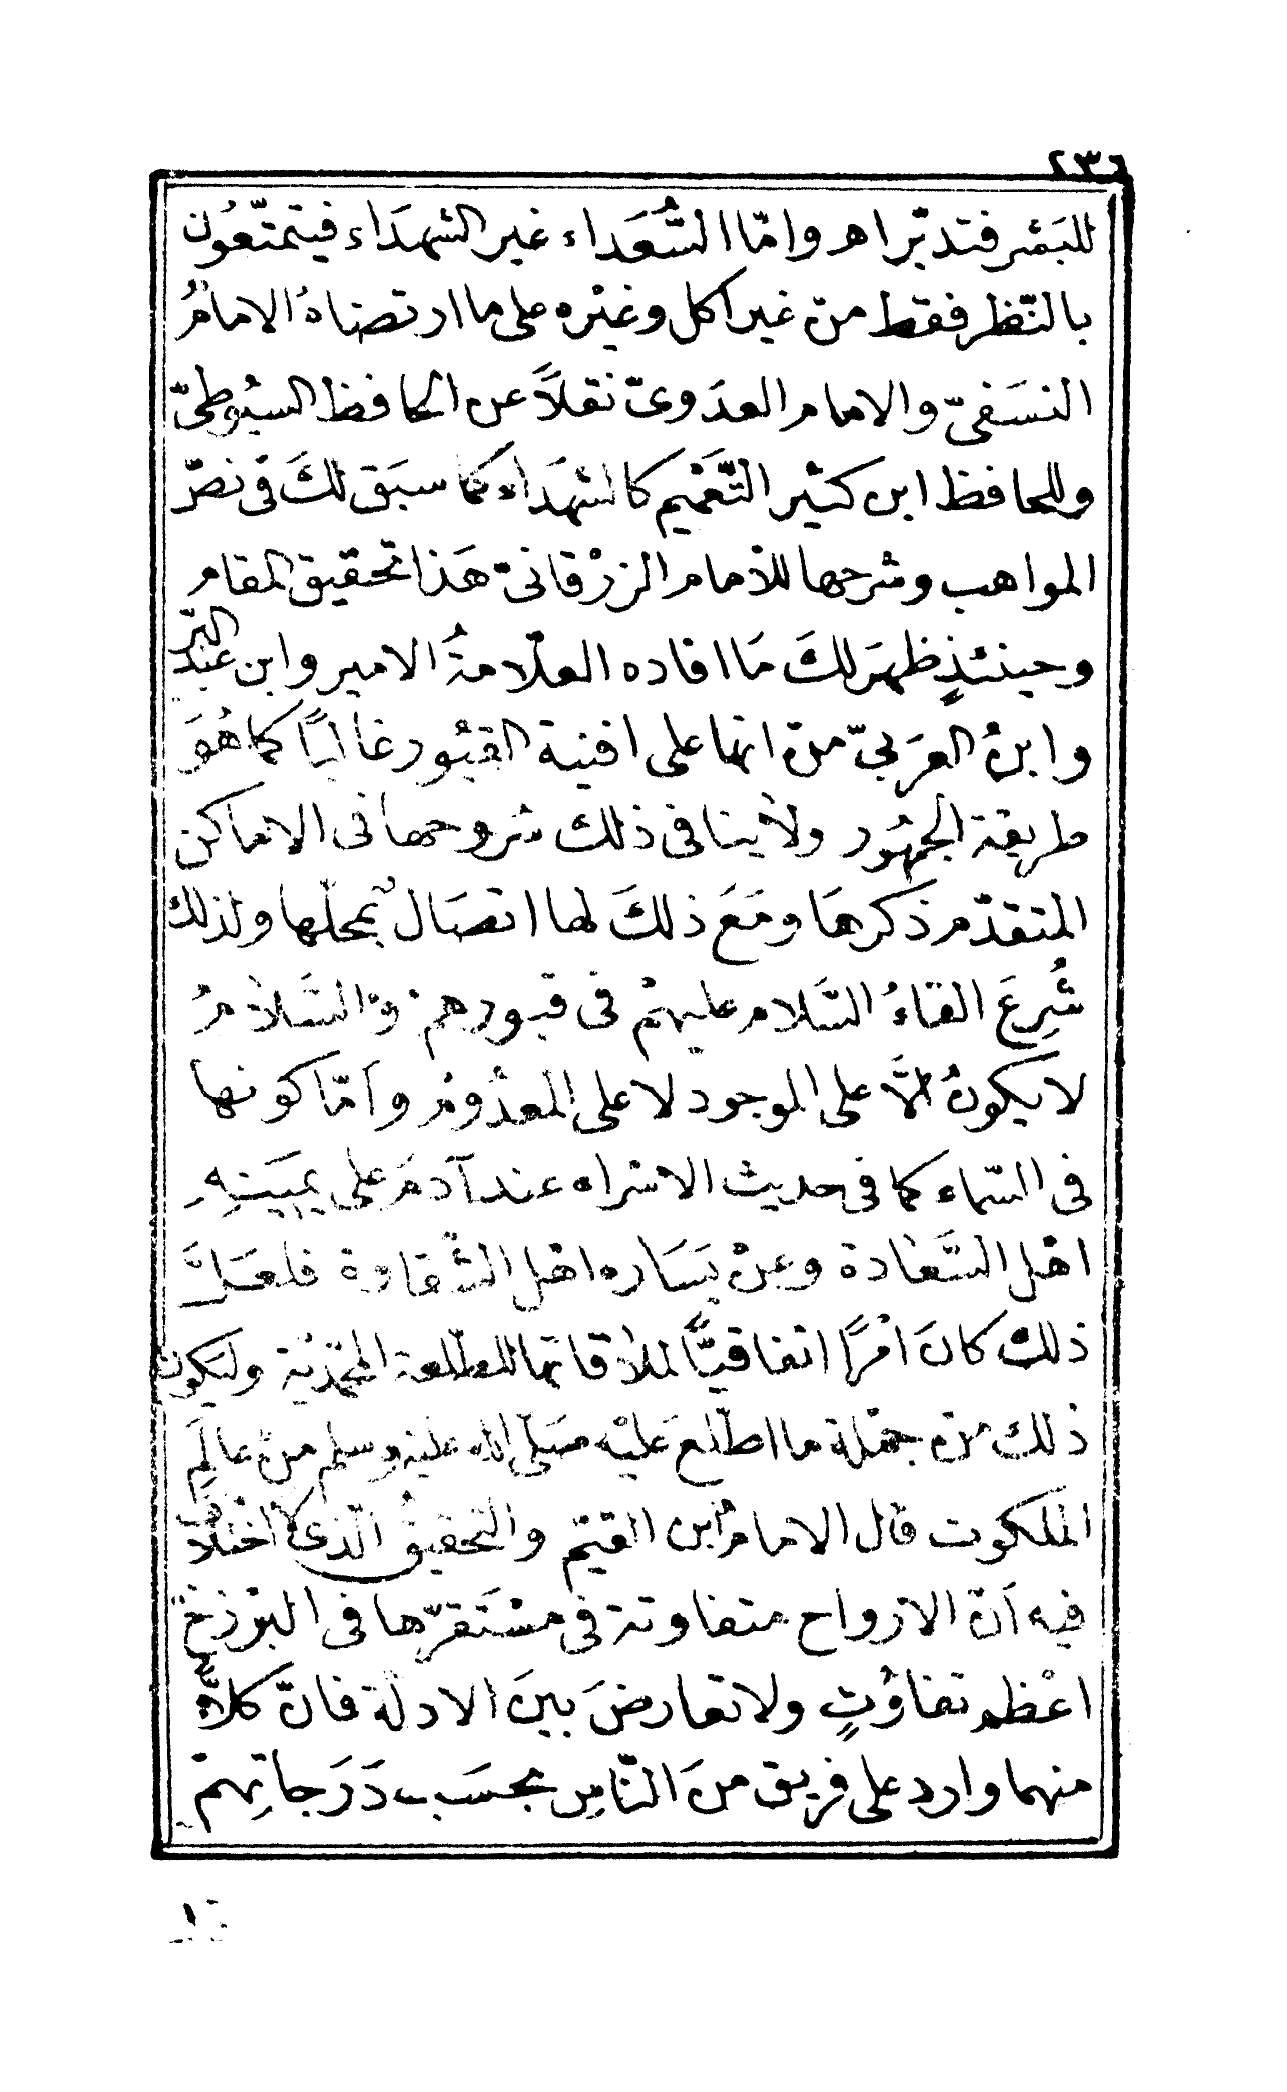 ٢٣٦
للبَشر فتدبّر اهـ وامّا السُّعَداء غير الشهدَاء فيتمتّعُون
بالنّظر فقط منْ غير اكل وغيْره على ما ارتضاهُ الامامُ
النسَفىّ والامام العدَوىّ نقلاً عن الحافظ السيُوطىّ
وللحافظ ابن كثير التَّعْميم كالشهَداء كما سبَق لكَ فى نصّ
المواهب وشرحها للأمام الزرْقانىّ هَذا تحقيق المقام
وحينئذٍ ظهَر لكَ مَا افاده العلّامةُ الامير وابن عبْد البّر
وابنُ العرَبىّ منْ انها على افنية القبُور غالبًا كما هُوَ
طريقة الجمهُور ولأينافى ذلك سَروحها فى الاماكن
المتقدّم ذكرهَا ومَعَ ذلكَ لها اتصَال بمحلّها ولذلك
شُرِعَ القاءُ السَّلام عليهمْ فى قبورهمْ والسَّلامُ
لا يكونُ الاَّ على الموجود لا على المعدُومْ وأمّا كونها
فى السّماء كما فى حديث الاسراء عند آدمَ على يمينِهِ
اهْل السَّعَادة وعنْ يسَاره اهْل الشَّقاوة فلعَلَّ
ذلك كانَ امْرًا اتفاقيًّا لملاقاتها للطلعة المحمّديّة وليكون
ذلك منْ جمْلة ما اطّلع عَليْه صَلى الله عليه وسلم منْ عالَمِ
الملكوت قال الامامُ ابن القيّم والتحقيقُ الّذى لا اختلافَ
فيه أنّ الارواح متفاوتة فى مسْتَقرّها فى البرْزخ
اعْظم تفاوُتٍ ولا تعارضَ بينَ الادلّة فانّ كلاًّ
منهما وارد على فريق منَ النّاس بحسَب دَرَجاتِهمْ